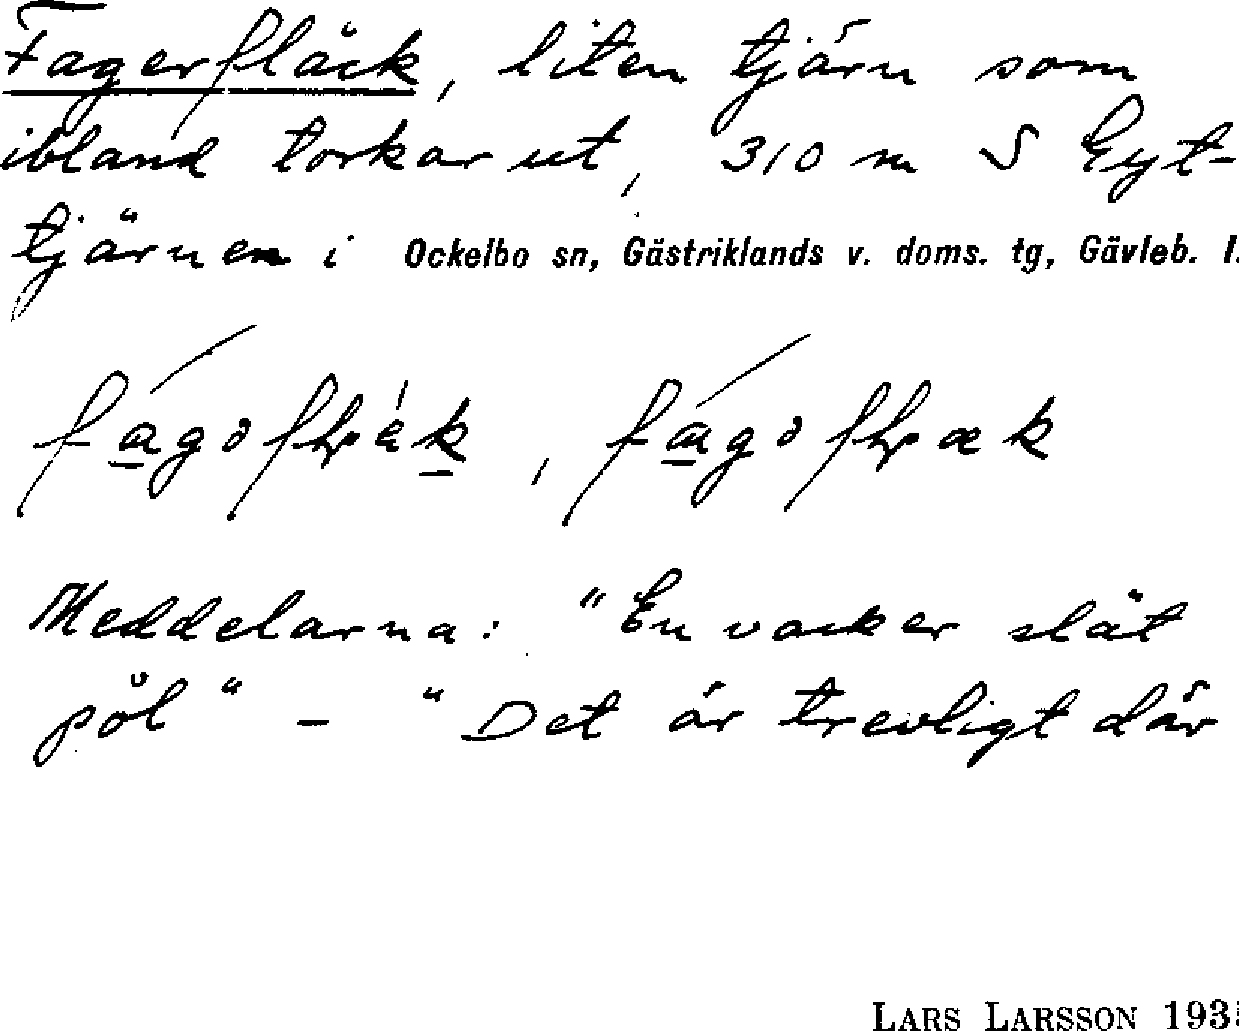 Fagerfläck, liten tjärn som
ibland torkar ut, 310 m S Gyt-
tjärnen i Ockelbo sn, Gästriklands v. doms. tg, Gävleb. l.
Meddelarna: "En vacker slät
pöl" - "Det är trevligt där
LARS LARSSON 193